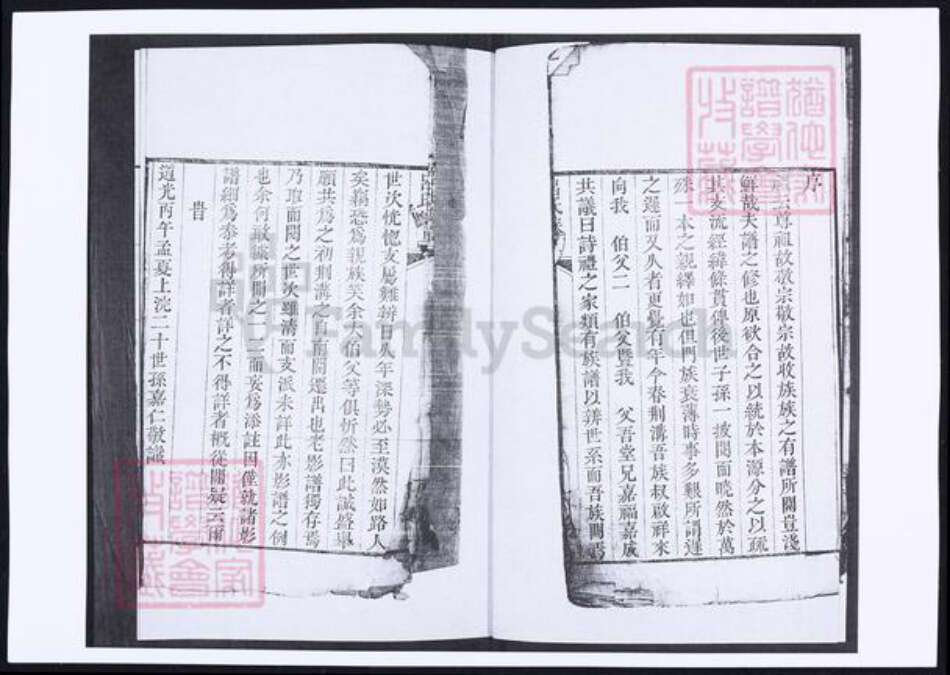 序
尊祖故敬宗敬宗故收族族之有譜所關豈淺
鮮哉夫譜之修也原欲合之以統於本源分之以疏
其支流經緯條貫傳後世子孫一披閱而曉然於萬
殊一本之親繹如也但門族衰薄時事多艱所謂遲
之遲而又久者更覺有年今春荆溝吾族叔啟祥來
向我 伯父二 伯父暨我 父吾堂兄嘉福嘉咸
共議曰詩禮之家類有族譜以辨世系而吾族間
世次恍惚支屬難辨日久年深勢必至漠然如路人
矣竊恐為親族笑余大伯父等俱忻然曰此誠盛舉
願共為之初荆溝之自南關遷出也老影譜獨存焉
乃取而閱之世次雖清而支派未詳此亦影譜之例
也余何敢據所聞之一二而妄為添註因僅就諸影
譜細為參考得詳者詳之不得詳者概從闕疑云爾
旹
道光丙午孟夏上浣二十世孫嘉仁敬識
FamilySearch
譜學會